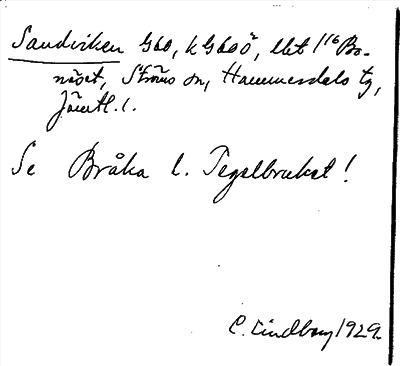 Sandviken G60, k G60Ö, littt 1/16 Bo-
näset, Ströms sn, Hammerdals tg,
Jämtl. l.
Se Bråka l. Tegelbruket!
C. Lindberg 1929.